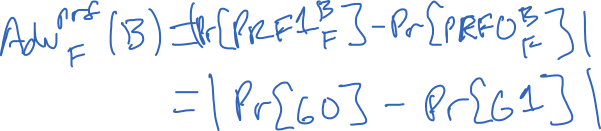 Adv^{prf}_F (B) = |Pr[PRF1^B_F] - Pr[PRF0^B_F]|
= |Pr[G0] - Pr[G1]|